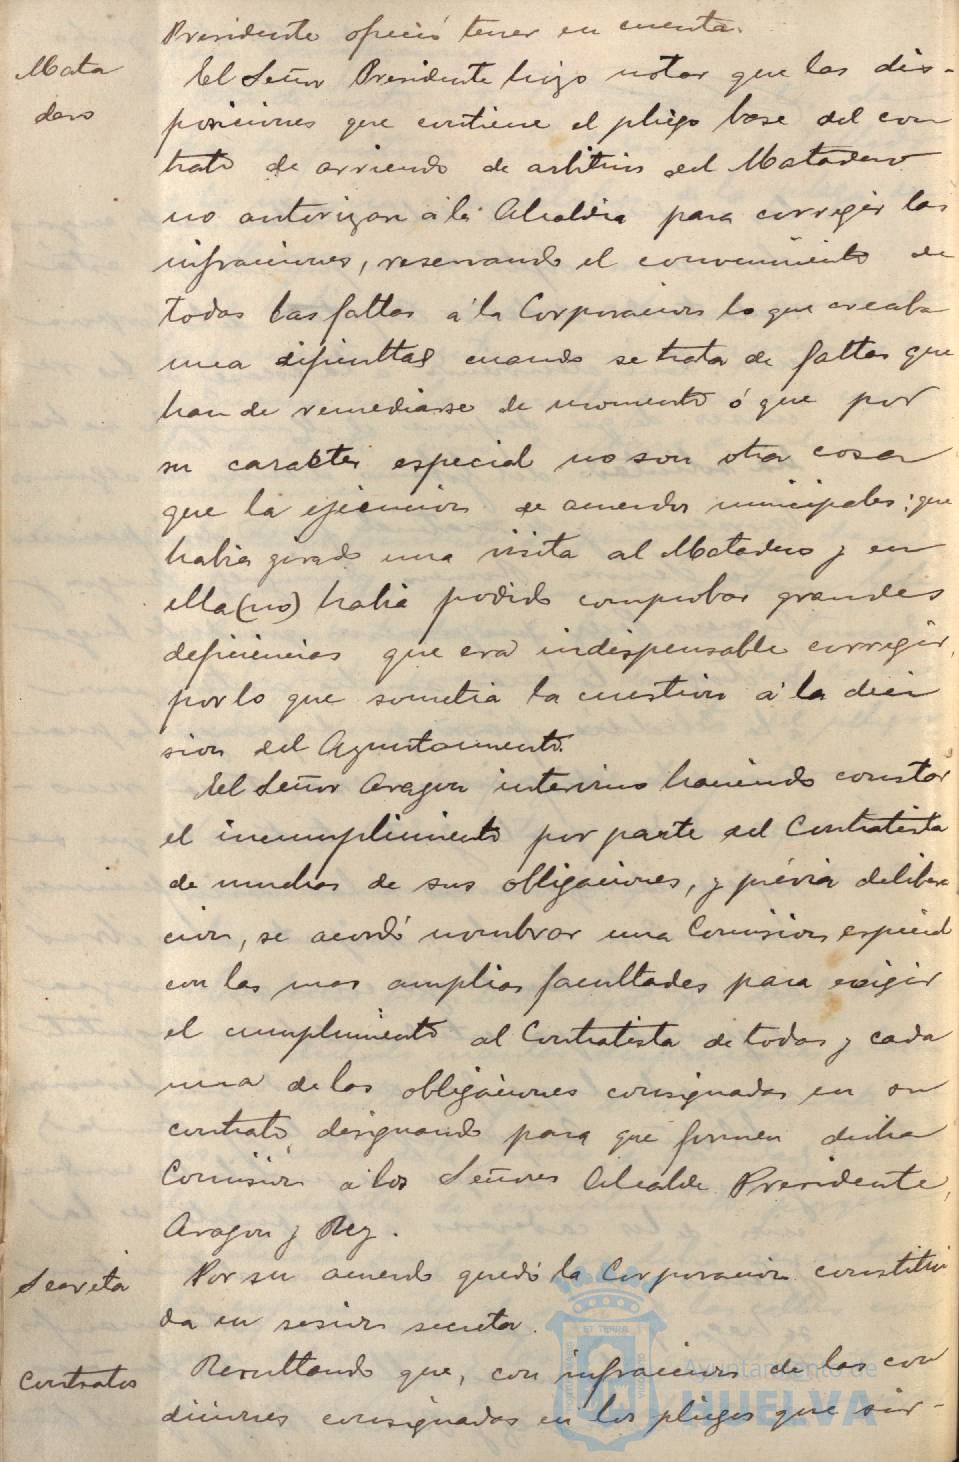 Presidente ofreció tener en cuenta.
Mata
dero
El Señor Presidente hizo notar que las dis-
posiciones que contiene el pliego base del con
trato de arriendo de arbitrios del Matadero
no autorizan á la Alcaldia para corregir las
infracciones, reservando el conocimiento de
todas las faltas á la Corporacion lo que creaba
una dificultad cuando se trata de faltas que
han de remediarse de momento ó que por
su caracter especial no son otra cosa
que la ejecucion de acuerdos municipales: que
habia girado una visita al Matadero y en
ella (no) habia podido comprobar grandes
deficiencias que era indispensable corregir,
por lo que sometia la cuestion á la deci
sion del Ayuntamiento.
El Señor Aragon intervino haciendo constar
el incumplimiento por parte del Contratista
de muchas de sus obligaciones, y prévia delibera
cion, se acordó nombrar una Comision especial
con las mas amplias facultades para exigir
el cumplimiento al Contratista de todas y cada
una de las obligaciones consignadas en su
contrato, designando para que formen dicha
Comision á los Señores Alcalde Presidente,
Aragon y Rey.
Secreta
Por su acuerdo quedó la Corporacion constitui
da en sesion secreta.
Contratos
Resultando que, con infraccion de las con
diciones consignadas en los pliegos que sir-
Ayuntamiento de
HUELVA